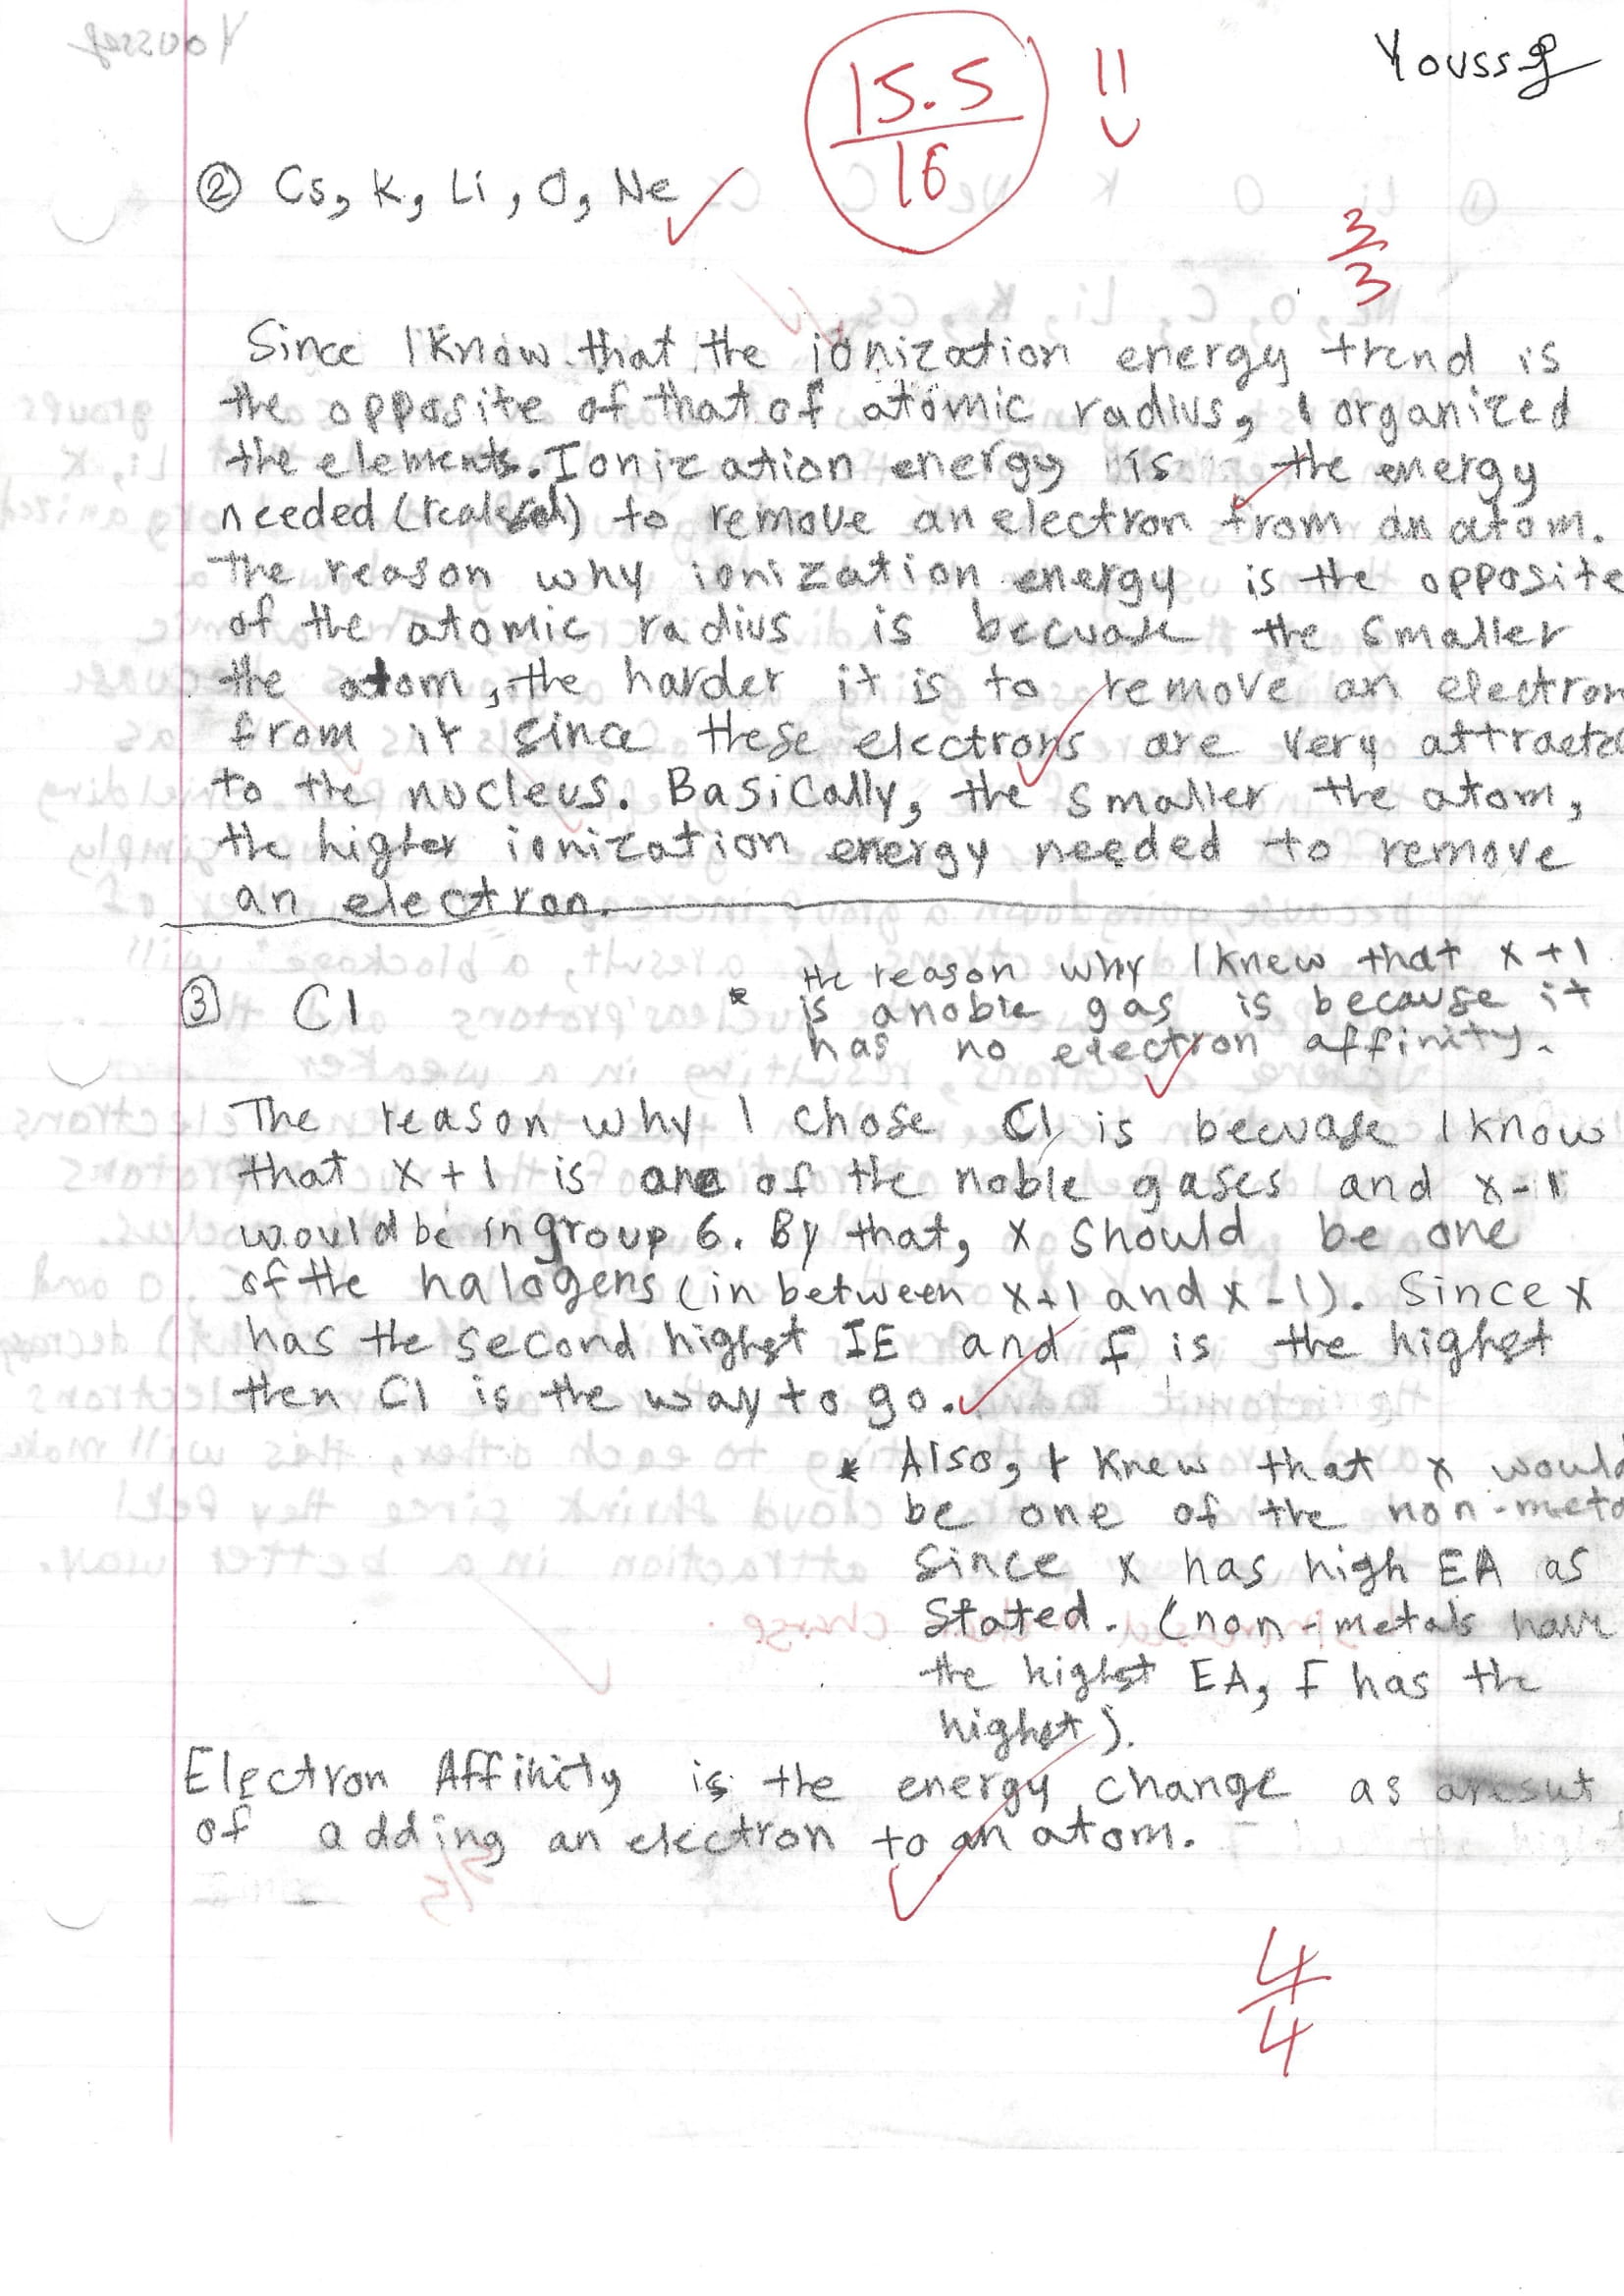 Youssef
15.5
16
② Cs, K, Li, O, Ne
3
3
Since I know that the ionization energy trend is
the opposite of that of atomic radius, I organized
the elements. Ionization energy is the energy
needed ( ) to remove an electron from an atom.
The reason why ionization energy is the opposite
of the atomic radius is becuase the smaller
the atom, the harder it is to remove an electron
from it since these electrons are very attracted
to the nucleus. Basically, the smaller the atom,
the higher ionization energy needed to remove
an electron.
③ Cl
* the reason why I knew that x+1
is a noble gas is because it
has no electron affinity.
The reason why I chose Cl is becuase I know
that x+1 is one of the noble gases and x-1
would be in group 6. By that, x should be one
of the halogens (in between x+1 and x-1). Since x
has the second highst IE and F is the highst
then Cl is the way to go.
* Also, I knew that x would
be one of the non-meta
since x has high EA as
stated. (non-metals have
the highst EA, F has the
highst).
Electron Affinity is the energy change as aresut
of adding an electron to an atom.
4
4